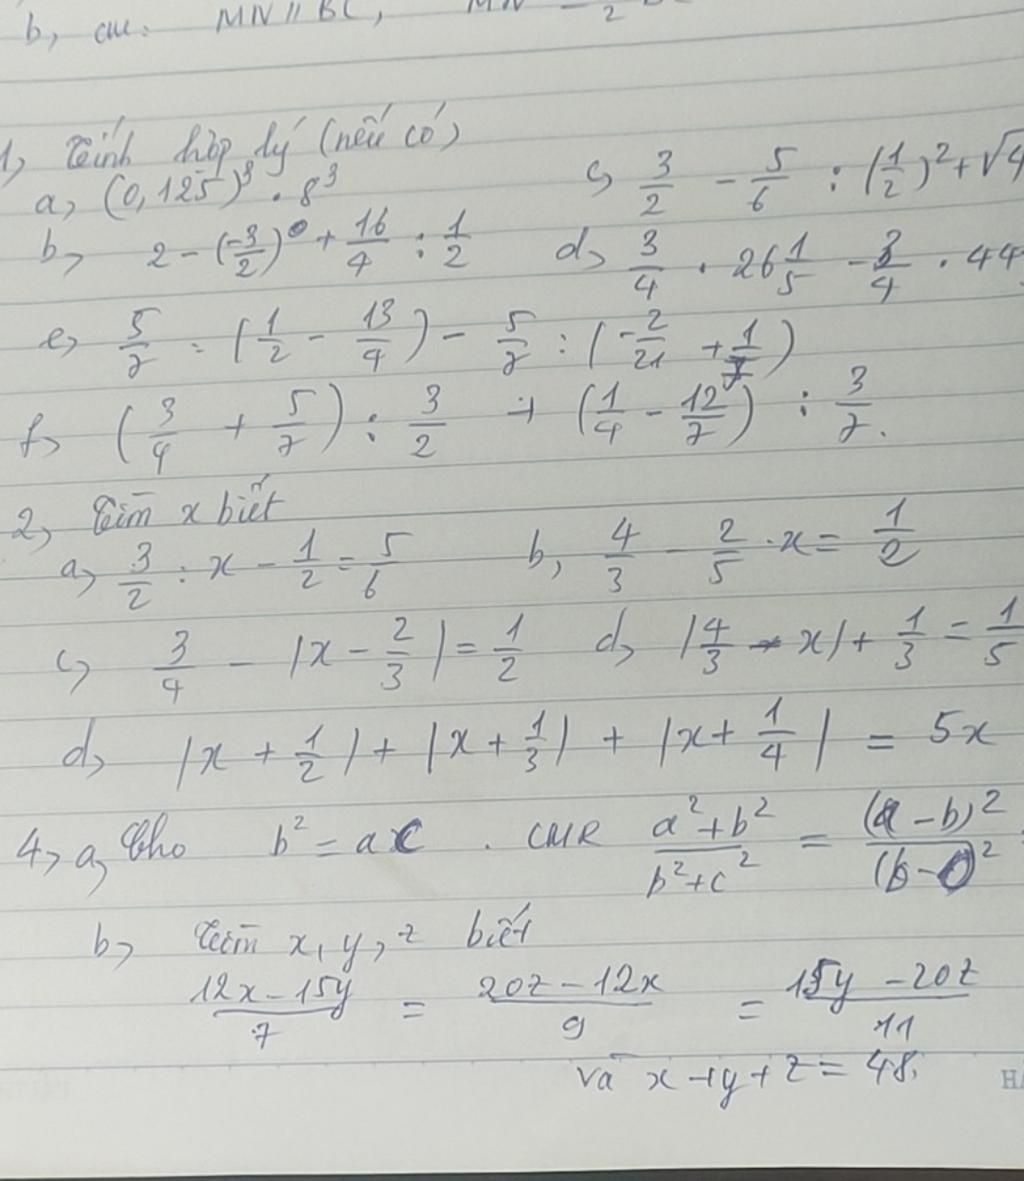 b, cm: MN // BC, MN
1, Tính hợp lý (nếu có)
a, (0,125)³ . 8³ c, 3/2 - 5/6 : (1/2)² + √4
b, 2 - (-3/2)⁰ + 16/4 : 1/2 d, 3/4 . 26 1/5 - 3/4 . 44
e, 5/7 : (1/2 - 13/4) - 5/7 : (-2/21 + 1/7)
f, (3/4 + 5/7) : 3/2 + (1/4 - 12/7) : 3/7.
2, Tìm x biết
a, 3/2 : x - 1/2 = 5/6 b, 4/3 - 2/5 . x = 1/2
c, 3/4 - |x - 2/3| = 1/2 d, |4/3 - x| + 1/3 = 1/5
d, |x + 1/2| + |x + 1/3| + |x + 1/4| = 5x
4, a, Cho b² = ac . CMR (a² + b²)/(b² + c²) = (a - b)²/(b - c)²
b, Tìm x, y, z biết
(12x - 15y)/7 = (20z - 12x)/9 = (15y - 20z)/11
và x + y + z = 48.